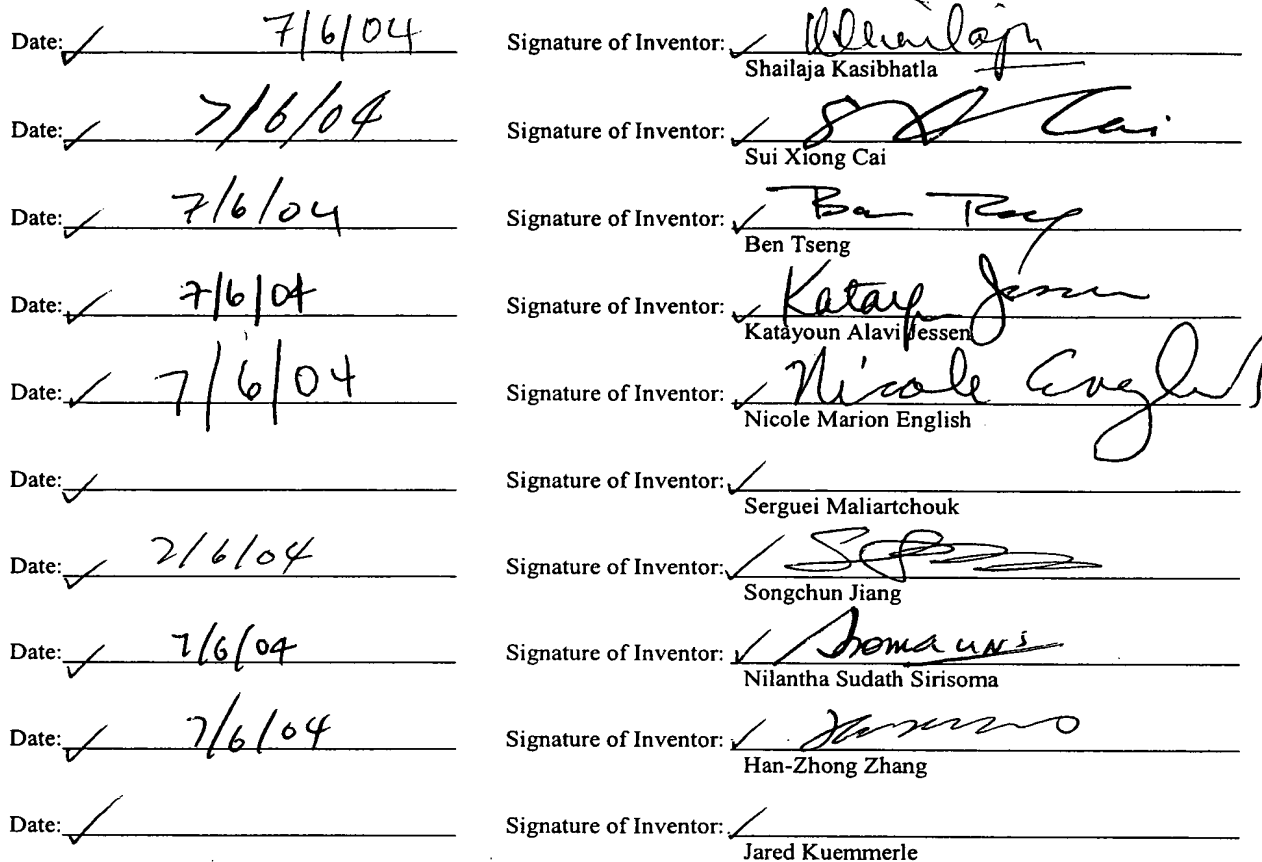 Date: 7/6/04 Signature of Inventor:
Shailaja Kasibhatla
Date: 7/6/04 Signature of Inventor: Cai
Sui Xiong Cai
Date: 7/6/04 Signature of Inventor: Ben
Ben Tseng
Date: 7/6/04 Signature of Inventor: Katayoun Jessen
Katayoun Alavi Jessen
Date: 7/6/04 Signature of Inventor: Nicole English
Nicole Marion English
Date: Signature of Inventor:
Serguei Maliartchouk
Date: 7/6/04 Signature of Inventor:
Songchun Jiang
Date: 7/6/04 Signature of Inventor:
Nilantha Sudath Sirisoma
Date: 7/6/04 Signature of Inventor:
Han-Zhong Zhang
Date: Signature of Inventor:
Jared Kuemmerle